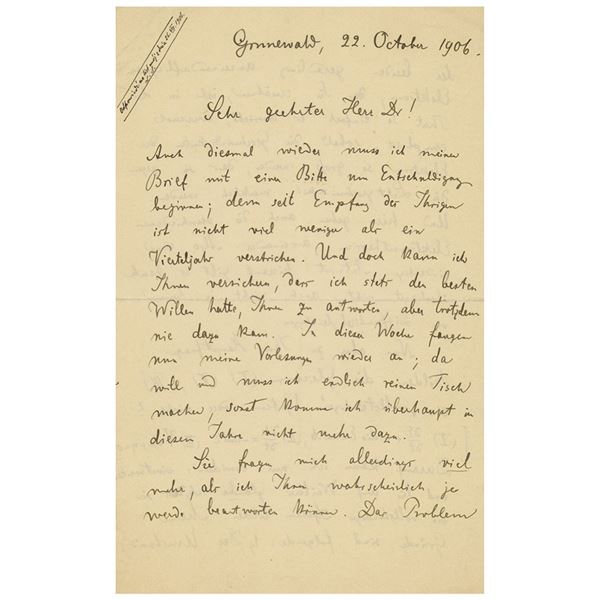 Grunewald, 22. October 1906.
Sehr geehrter Herr Dr!
Auch diesmal wieder muss ich meinen
Brief mit einer Bitte um Entschuldigung
beginnen; denn seit Empfang des Ihrigen
ist nicht viel weniger als ein
Vierteljahr verstrichen. Und doch kann ich
Ihnen versichern, dass ich stets den besten
Willen hatte, Ihnen zu antworten, aber trotzdem
nie dazu kam. In dieser Woche fangen
nun meine Vorlesungen wieder an; da
will und muss ich endlich reinen Tisch
machen, sonst komme ich überhaupt in
diesem Jahre nicht mehr dazu.
Sie fragen mich allerdings viel
mehr, als ich Ihnen wahrscheinlich je
werde beantworten können. Das Problem